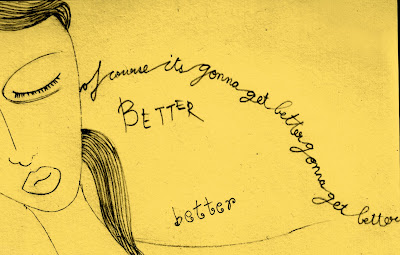 of course its gonna get better gonna get better
BETTER
better